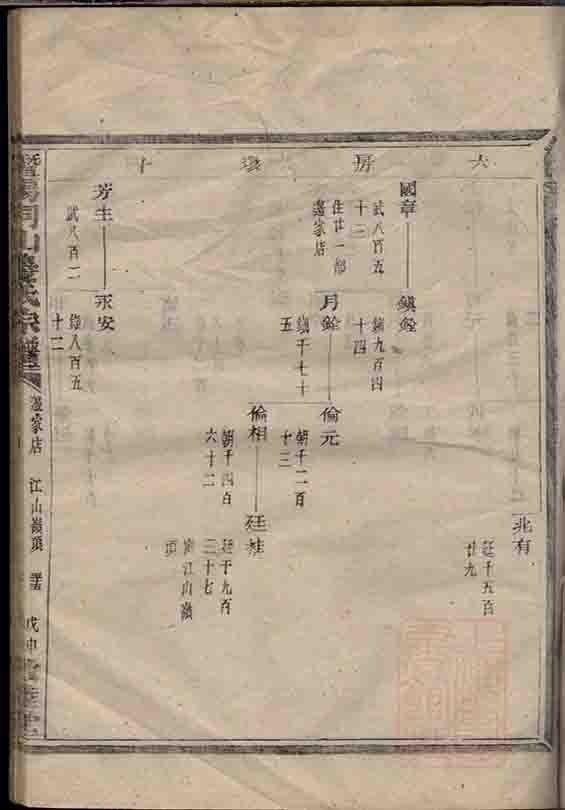 六 房 十
兆有
廷千五百
廿九
國章
武八百五
十三
住廿一都
邊家店
鎮銓
鎮九百四
十四
月銓
鎮千七十
五
倫元
朝千二百
十三
倫相
朝千四百
六十二
廷桂
廷千九百
三十七
寓江山嶺
頂
芳生
武八百二
永安
鎮八百五
十二
暨陽同山邊氏宗譜 邊家店 江山嶺頂 戊申 堂